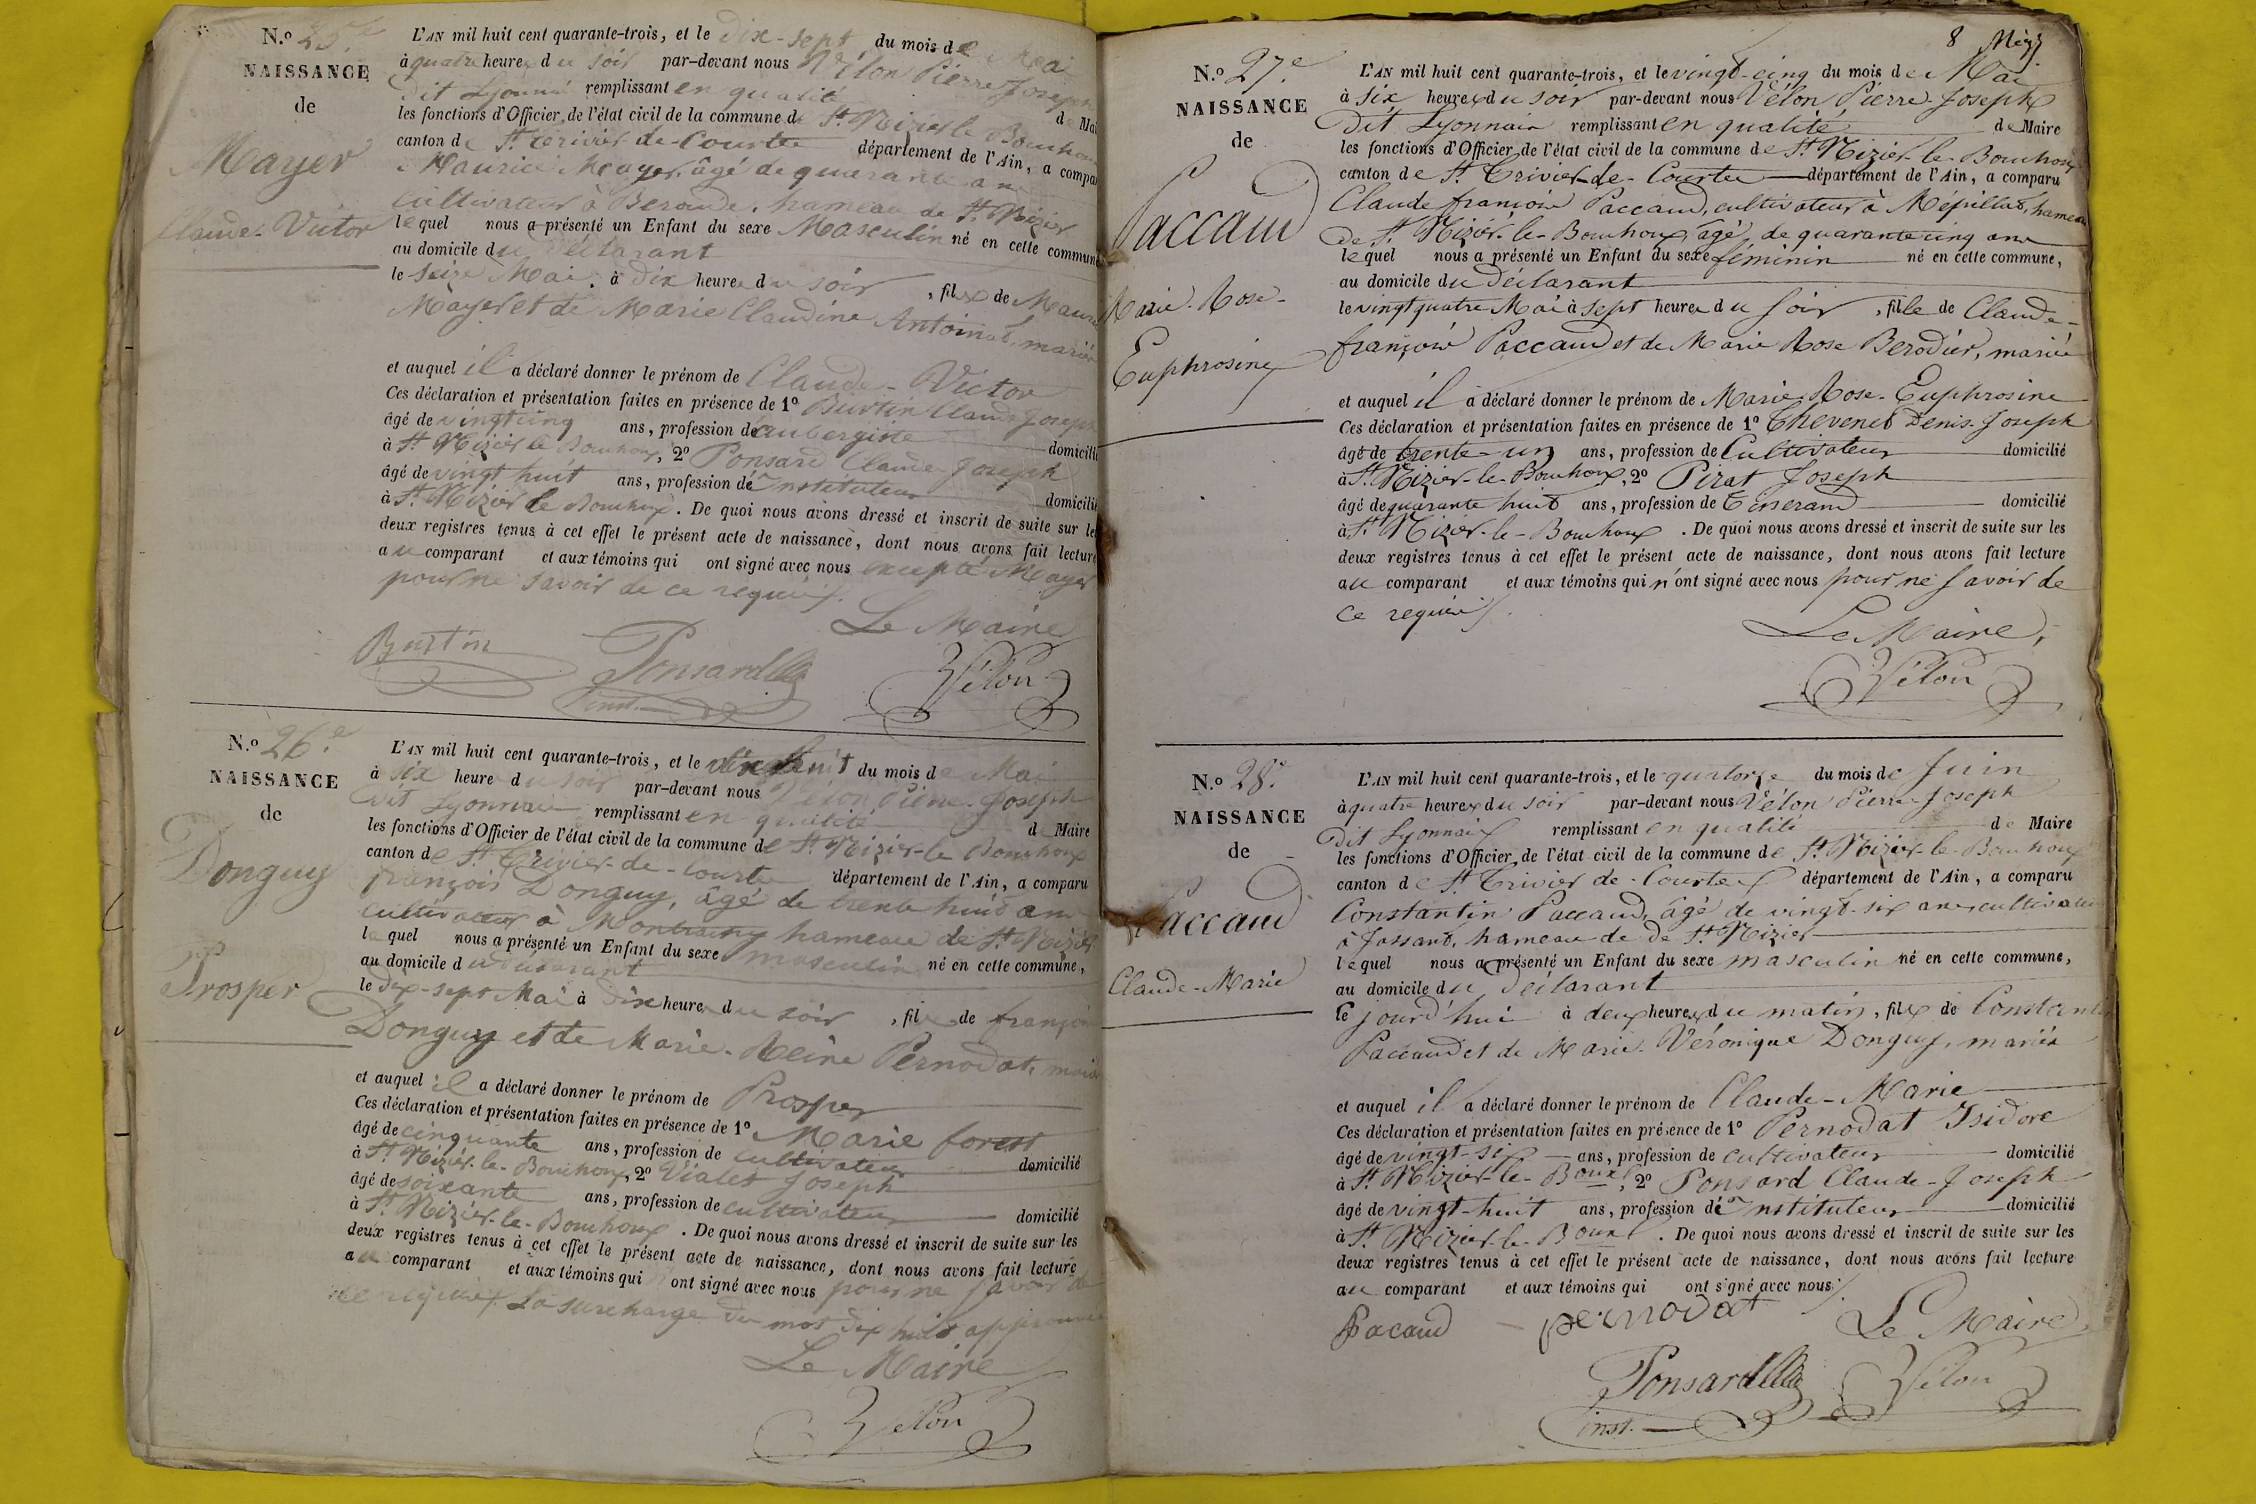 N.º 25.e
NAISSANCE
de
Mayer
Claude-Victor
L'AN mil huit cent quarante-trois, et le dix-sept du mois de Mai
à quatre heures du soir par-devant nous Vélon Pierre Joseph
dit Lyonnais remplissant en qualité de Mai
les fonctions d'Officier de l'état civil de la commune de St. Nizier le Bouchoux
canton de St. Trivier-de-Courtes département de l'Ain, a compa
Maurice Mayer, âgé de quarante ans
cultivateur à Beroude, hameau de St. Nizier
lequel nous a présenté un Enfant du sexe Masculin né en cette commune
au domicile du déclarant
le seize Mai à dix heures du soir, fils de Mauri
Mayer et de Marie Claudine Antoinat, mariés
et auquel il a déclaré donner le prénom de Claude-Victor
Ces déclaration et présentation faites en présence de 1º Burtin Claude Joseph
âgé de vingt cinq ans, profession d'aubergiste domicilié
à St. Nizier le Bouchoux, 2º Ponsard Claude Joseph
âgé de vingt huit ans, profession d'Instituteur domicilié
à St. Nizier le Bouchoux. De quoi nous avons dressé et inscrit de suite sur les
deux registres tenus à cet effet le présent acte de naissance, dont nous avons fait lecture
au comparant et aux témoins qui ont signé avec nous excepté Mayer
pour ne savoir de ce requis.
Le Maire
Burtin Ponsard Vélon
inst.
N.º 26.e
NAISSANCE
de
Donguy
Prosper
L'AN mil huit cent quarante-trois, et le dix huit du mois de Mai
à six heure du soir par-devant nous Vélon Pierre-Joseph
dit Lyonnais remplissant en qualité de Maire
les fonctions d'Officier de l'état civil de la commune de St. Nizier-le Bouchoux
canton de St. Trivier-de-Courtes département de l'Ain, a comparu
françois Donguy, âgé de trente huit ans
cultivateur à hameau de St. Nizier
lequel nous a présenté un Enfant du sexe masculin né en cette commune,
au domicile du déclarant
le dix-sept Mai à dix heures du soir, fils de françois
Donguy et de Marie-Reine Pernodat, mariés
et auquel il a déclaré donner le prénom de Prosper
Ces déclaration et présentation faites en présence de 1º Marie forest
âgé de cinquante ans, profession de cultivateur domicilié
à St. Nizier-le-Bouchoux, 2º Vialet Joseph
âgé de soixante ans, profession de cultivateur domicilié
à St. Nizier-le-Bouchoux. De quoi nous avons dressé et inscrit de suite sur les
deux registres tenus à cet effet le présent acte de naissance, dont nous avons fait lecture
au comparant et aux témoins qui ont signé avec nous pour ne savoir de
ce requis. La surcharge du mot dix huit approuvée
Le Maire
Vélon
8
N.º 27.e
NAISSANCE
de
Paccaud
Marie-Rose-
Euphrosine
L'AN mil huit cent quarante-trois, et le vingt-cinq du mois de Mai
à six heures du soir par-devant nous Vélon Pierre-Joseph
dit Lyonnais remplissant en qualité de Maire
les fonctions d'Officier de l'état civil de la commune de St. Nizier-le-Bouchoux
canton de St. Trivier-de-Courtes département de l'Ain, a comparu
Claude françois Paccaud, cultivateur à Mépillat, hameau
de St. Nizier-le-Bouchoux, âgé de quarante cinq ans
lequel nous a présenté un Enfant du sexe féminin né en cette commune,
au domicile du déclarant
le vingt quatre Mai à sept heures du soir, fille de Claude-
françois Paccaud et de Marie Rose Berodier, mariés
et auquel il a déclaré donner le prénom de Marie-Rose-Euphrosine
Ces déclaration et présentation faites en présence de 1º Thevenet Denis-Joseph
âgé de trente-un ans, profession de Cultivateur domicilié
à St. Nizier-le-Bouhoux, 2º Pirat Joseph
âgé de quarante huit ans, profession de Tisserand domicilié
à St. Nizier-le-Bouhoux. De quoi nous avons dressé et inscrit de suite sur les
deux registres tenus à cet effet le présent acte de naissance, dont nous avons fait lecture
au comparant et aux témoins qui n'ont signé avec nous pour ne savoir de
ce requis.
Le Maire,
Vélon
N.º 28.e
NAISSANCE
de
Paccaud
Claude-Marie
L'AN mil huit cent quarante-trois, et le quatorze du mois de Juin
à quatre heures du soir par-devant nous Vélon Pierre-Joseph
dit Lyonnais remplissant en qualité de Maire
les fonctions d'Officier de l'état civil de la commune de St. Nizier-le-Bouchoux
canton de St. Trivier-de-Courtes département de l'Ain, a comparu
Constantin Paccaud, âgé de vingt-six ans, cultivateur
à Jassant, hameau de de St. Nizier
lequel nous a présenté un Enfant du sexe masculin né en cette commune,
au domicile du déclarant
le jourd'hui à deux heures du matin, fils de Constantin
Paccaud et de Marie-Véronique Donguy, mariés
et auquel il a déclaré donner le prénom de Claude-Marie
Ces déclaration et présentation faites en présence de 1º Pernodat Isidore
âgé de vingt-six ans, profession de cultivateur domicilié
à St. Nizier-le-Boux, 2º Ponsard Claude-Joseph
âgé de vingt-huit ans, profession d'Instituteur domicilié
à St. Nizier-le-Boux. De quoi nous avons dressé et inscrit de suite sur les
deux registres tenus à cet effet le présent acte de naissance, dont nous avons fait lecture
au comparant et aux témoins qui ont signé avec nous.
Pacaud pernodat Le Maire
Ponsard Vélon
inst.